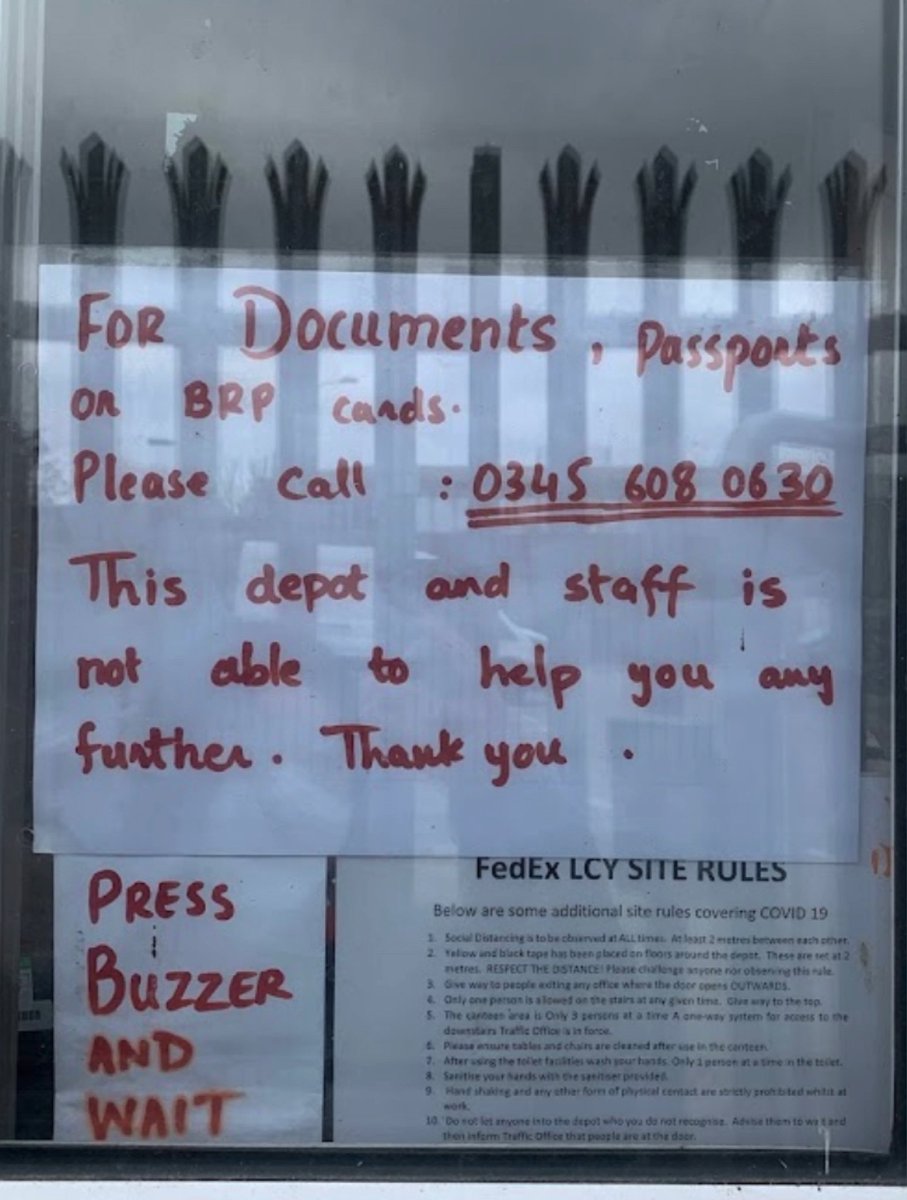 FOR Documents, Passports
or BRP cards.
Please call : 0345 608 0630
This depot and staff is
not able to help you any
further. Thank you.
PRESS
BUZZER
AND
WAIT
FedEx LCY SITE RULES
Below are some additional site rules covering COVID 19
1. Social Distancing is to be observed at ALL times. At least 2 metres between each other.
2. Yellow and black tape has been placed on floors around the depot. These are set at 2
metres. RESPECT THE DISTANCE! Please challenge anyone not observing this rule.
3. Give way to people exiting any office where the door opens OUTWARDS.
4. Only one person is allowed on the stairs at any given time. Give way to the top.
5. The canteen area is Only 3 persons at a time A one-way system for access to the
downstairs Traffic Office is in force.
6. Please ensure tables and chairs are cleaned after use in the canteen.
7. After using the toilet facilities wash your hands. Only 1 person at a time in the toilet.
8. Sanitise your hands with the sanitiser provided.
9. Hand shaking and any other form of physical contact are strictly prohibited whilst at
work.
10. Do not let anyone into the depot who you do not recognise. Advise them to wait and
then inform Traffic Office that people are at the door.